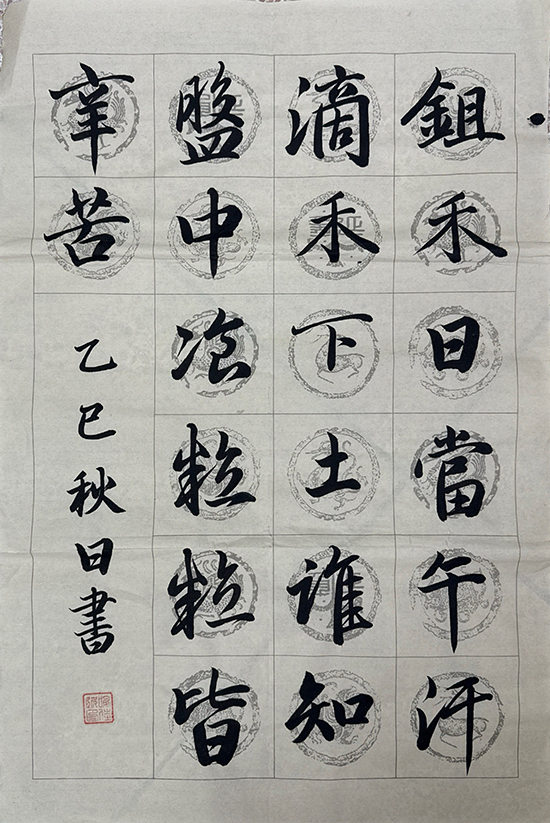 鉏禾日當午汗
滴禾下土誰知
盤中飡粒粒皆
辛苦
乙巳秋日書